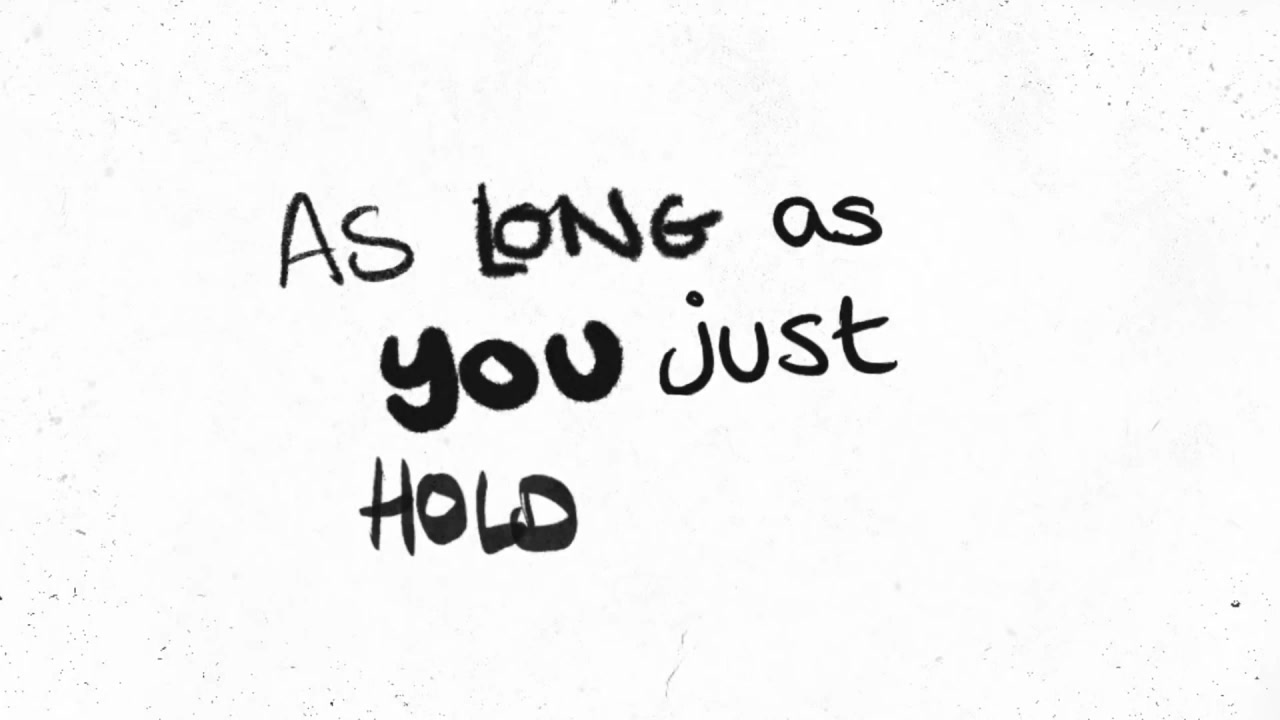 As LONG as
you just
HOLD